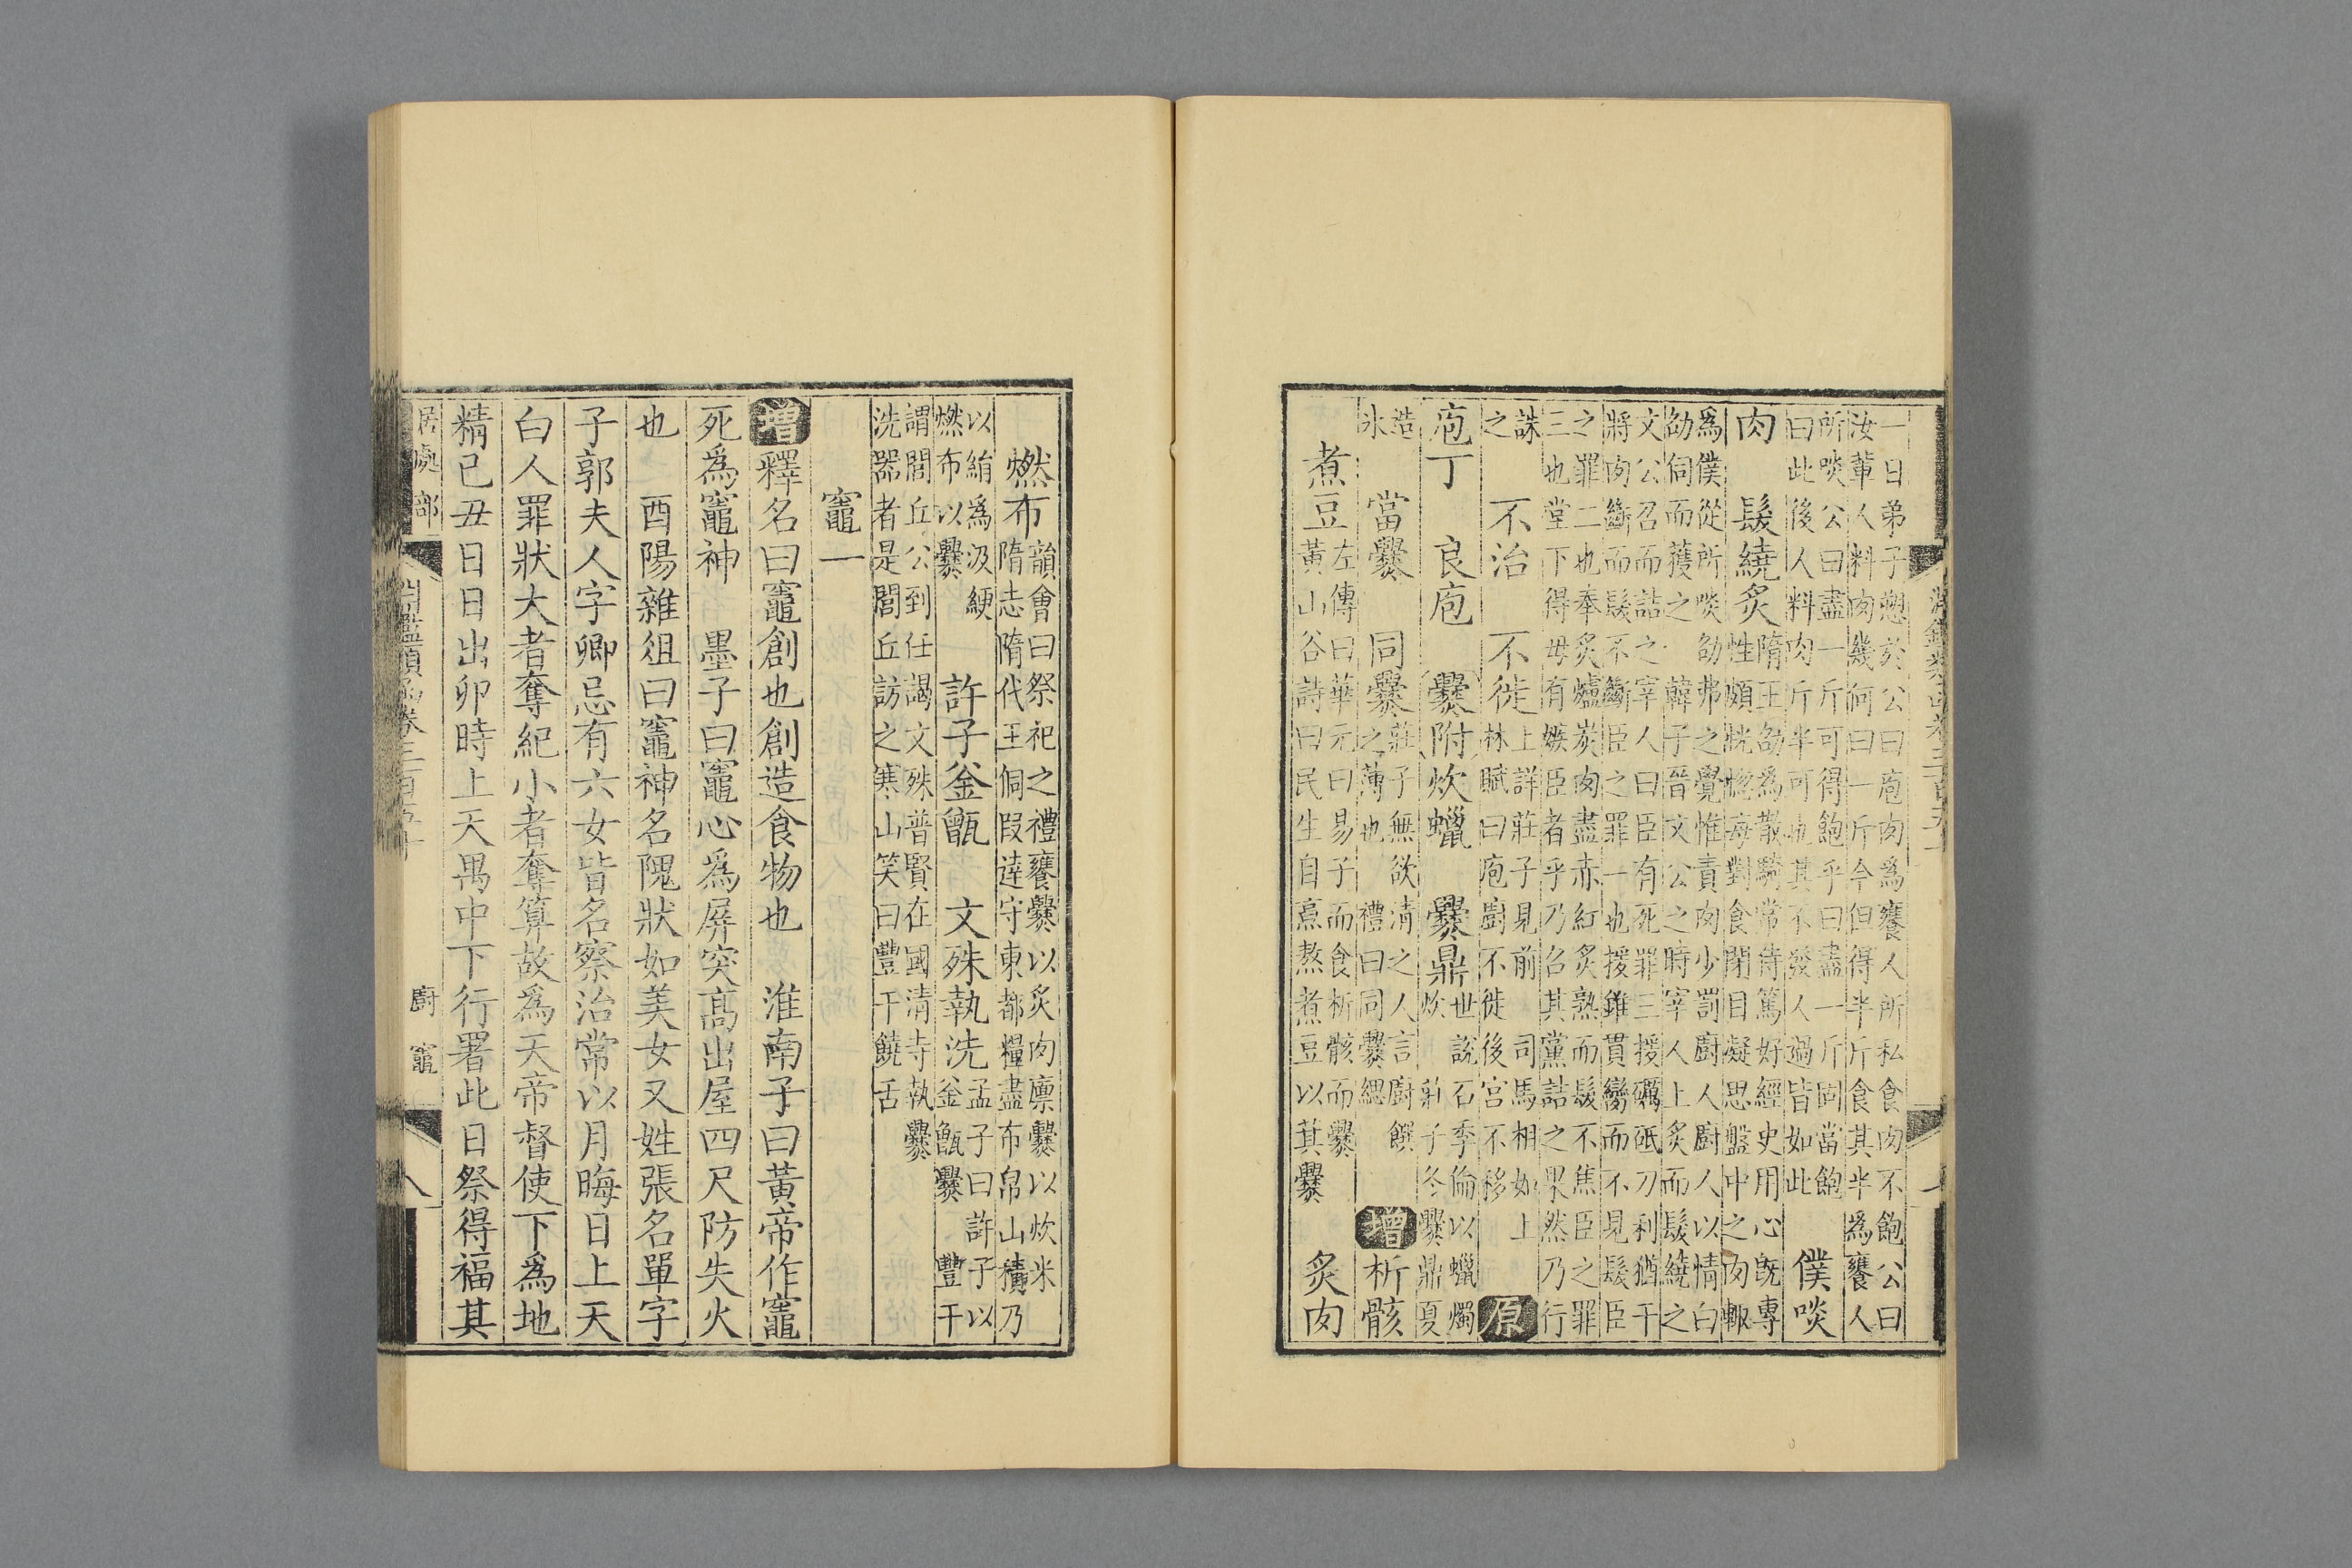 一日弟子愬於公曰庖肉爲饔人所私食肉不飽公曰
汝輩人料肉幾何曰一斤今但得半斤食其半爲饔人
所啖公曰盡一斤可得飽乎曰盡一斤固當飽
曰此後人料肉斤半可也其不發人過皆如此
僕啖
肉
髮繞炙
隋王劭爲散騎常侍篤好經史用心旣專
性頗恍惚每對食閉目凝思盤中之肉輙
爲僕從所啖劭弗之覺惟責肉少罰廚人廚人以情白
劭伺而獲之
韓子晉文公之時宰人上炙而髮繞之
文公召而詰之宰人曰臣有死罪三援礪砥刀利猶干
將肉斷而髮不斷臣之罪一也援錐貫臠而不見髮臣
之罪二也奉炙爐炭肉盡赤紅炙熟而髮不焦臣之罪
三也堂下得毋有嫉臣者乎乃召其黨詰之果然乃行
誅
之
不治
不徙
上詳莊子見前
司馬相如上
林賦曰庖廚不徙後宮不移
原
庖丁
良庖
爨附炊蠟
爨鼎
世說石季倫以蠟燭
炊
莊子冬爨鼎夏
造
冰
當爨
同爨
莊子無欲清之人言廚饌
之薄也
禮曰同爨緦
增
析骸
煮豆
左傳曰華元曰易子而食析骸而爨
黃山谷詩曰民生自熬熬煮豆以萁爨
炙肉
燃布
韻會曰祭祀之禮饔爨以炙肉廩爨以炊米
隋志隋代王侗叚達守東都糧盡布帛山積乃
以絹爲汲綆
燃布以爨
許子釜甑
文殊執洗
孟子曰許子以
釜甑爨
豐干
謂閭丘公到任謁文殊普賢在國清寺執爨
洗器者是閭丘訪之寒山笑曰豐干饒舌
竈一
增釋名曰竈創也創造食物也 淮南子曰黃帝作竈
死爲竈神 墨子曰竈心爲屏突高出屋四尺防失火
也 酉陽雜俎曰竈神名隗狀如美女又姓張名單字
子郭夫人字卿忌有六女皆名察治常以月晦日上天
白人罪狀大者奪紀小者奪算故爲天帝督使下爲地
精已丑日日出卯時上天禺中下行署此日祭得福其
居處部
淵鑑類函卷三百五十
廚
竈
八